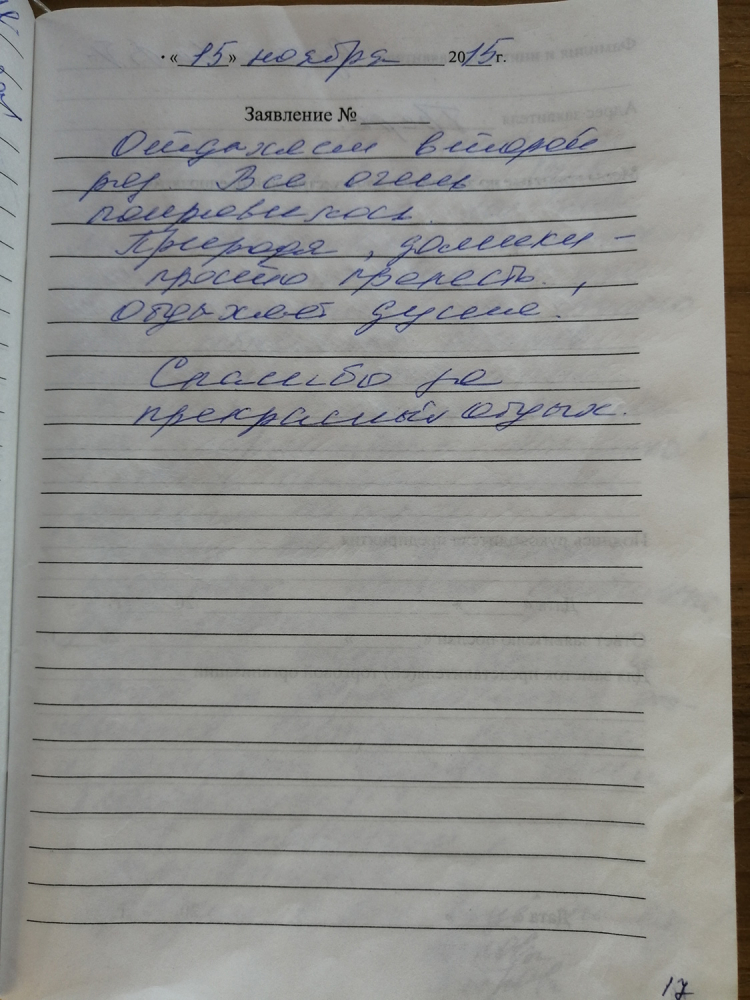 «15» ноября 2015г.
Заявление №
Отдыхаем второй
раз Все очень
понравилось.
Природа, домики –
просто прелесть.,
Отдыхает душа.
Спасибо за
прекрасный отдых.
17